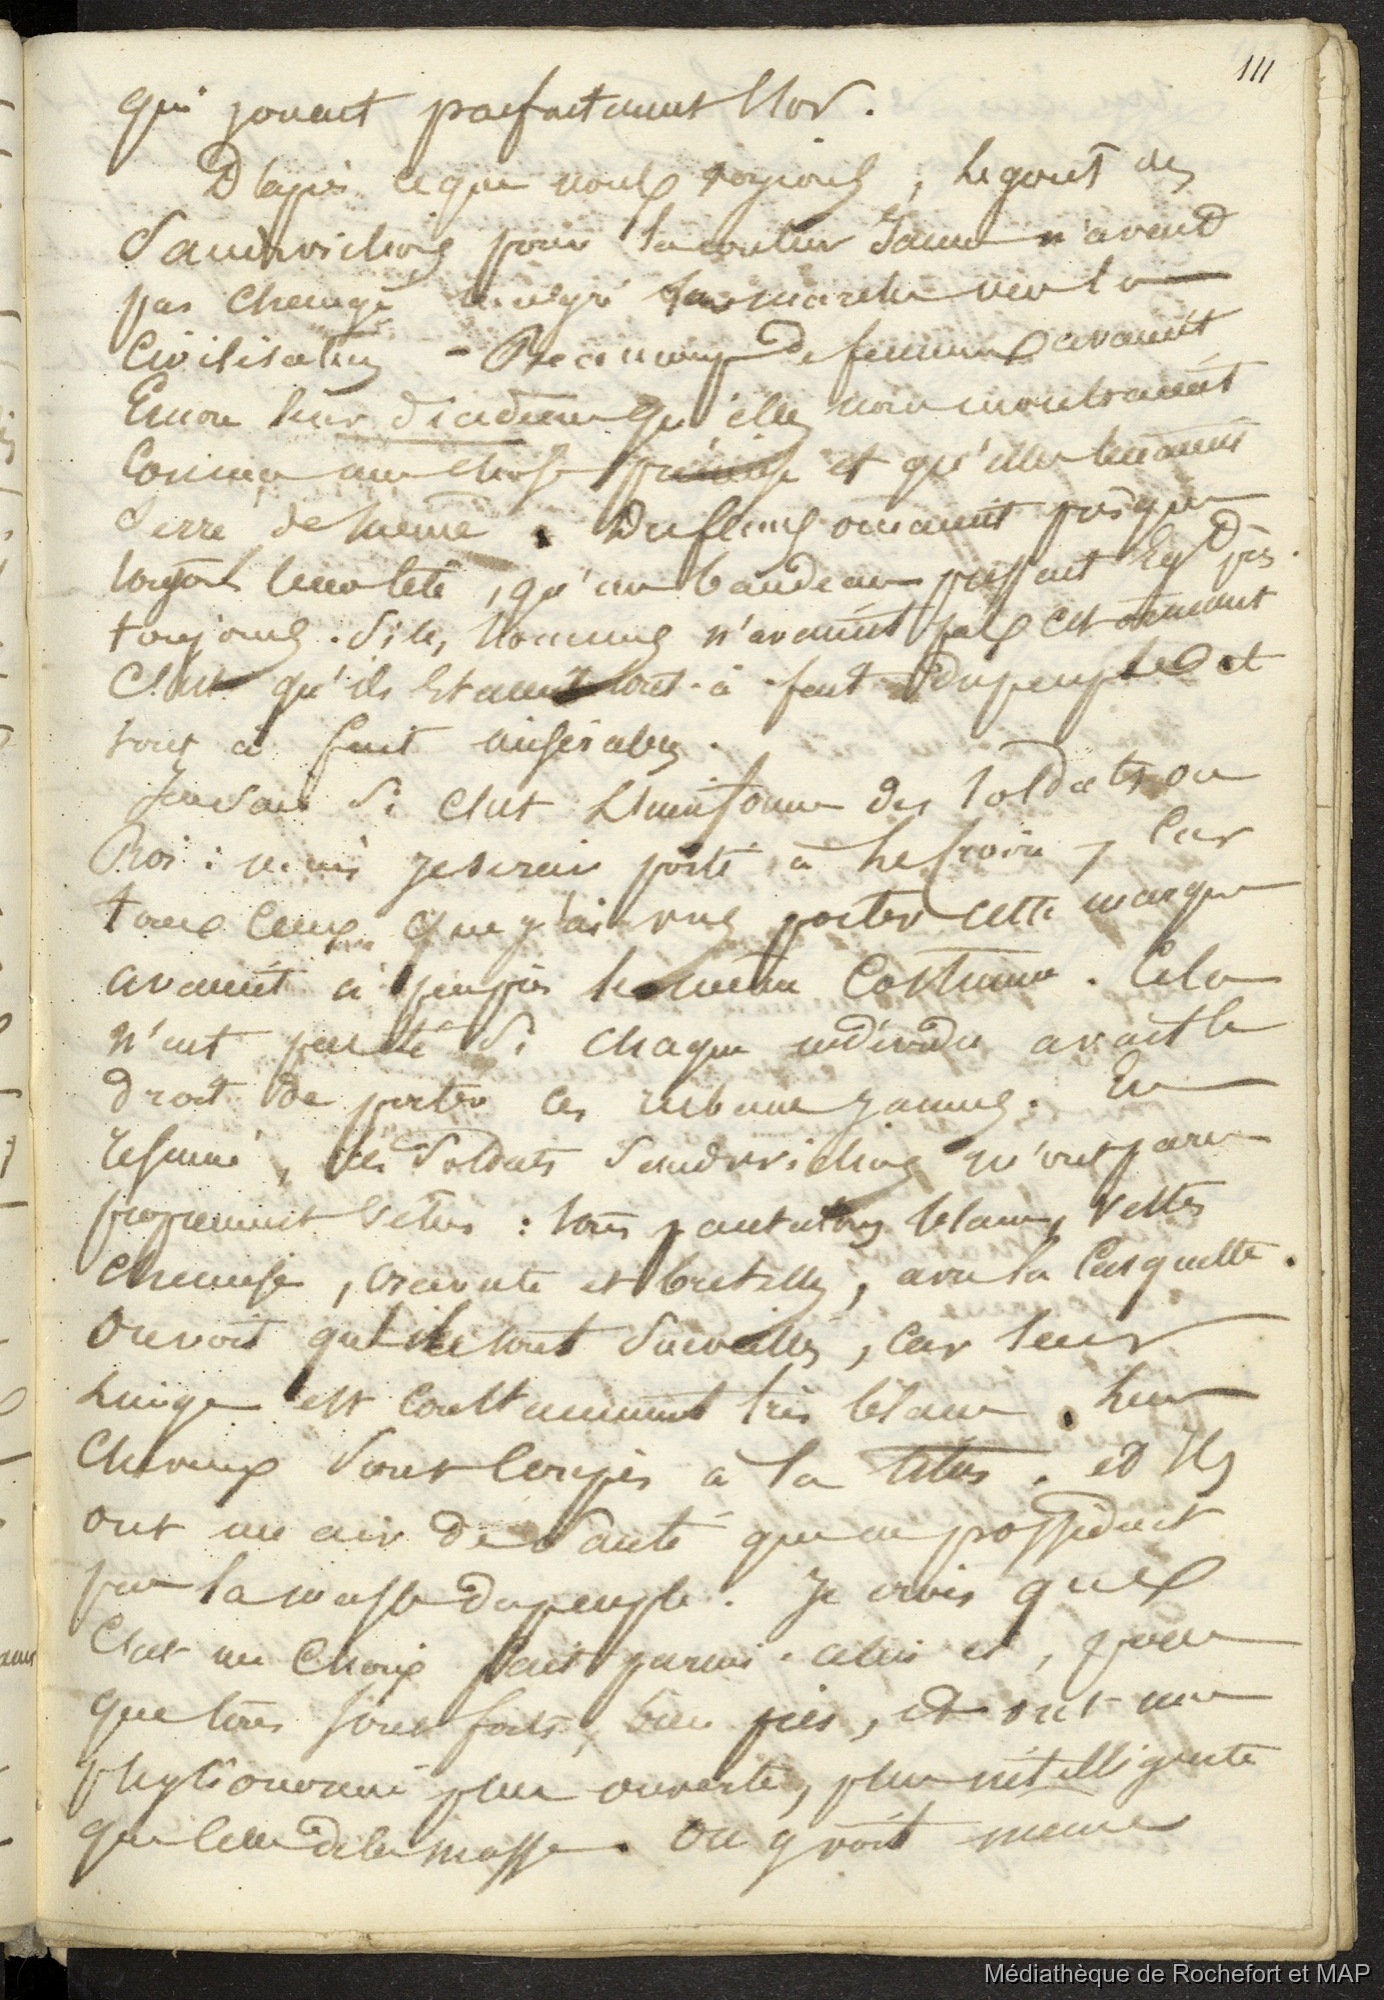 111
qui jouait parfaitement l'or.
D'après ce que nous voyions, le goût des
Sandwichois pour la couleur Jaune n'avait
pas changé malgré la marche vers la
Civilisation - Beaucoup de femmes avaient
Encore leur diadème qu'elles nous montraient
Comme une chose précieuse et qu'elles tenaient
Serré de même. Des fleurs ornaient presque
toujours leur tête, qu'un bandeau pressait
toujours. Si les hommes n'avaient pas cet ornement
C'est qu'ils Etaient tout-à-fait du peuple et
tout à fait misérables.
Je ne sais Si C'est L'uniforme des Soldats du
Roi : mais je serais porté à le croire, Car
tous Ceux que j'ai vus porter cette marque
avaient à peu près le même Costume. Cela
n'eut pas été Si chaque individu avait le
droit de porter ces rubans jaunes. En
résumé, les Soldats Sandwichois m'ont paru
proprement vêtus : tous pantalons blancs, vestes
Chemise, cravate et bretelles, avec la Casquette.
On voit qu'ils sont Surveillés, car leur
Linge est Constamment très blanc. Leurs
Cheveux Sont Coupés à la titus. et Ils
ont un air de Santé que ne possédait
pas la masse du peuple. Je crois que
C'est un Choix fait parmi celui ci, parce
que tous sont forts, bien pris, et ont une
physionomie plus ouverte, plus intelligente
que celle de la masse. On y voit même
Médiathèque de Rochefort et MAP